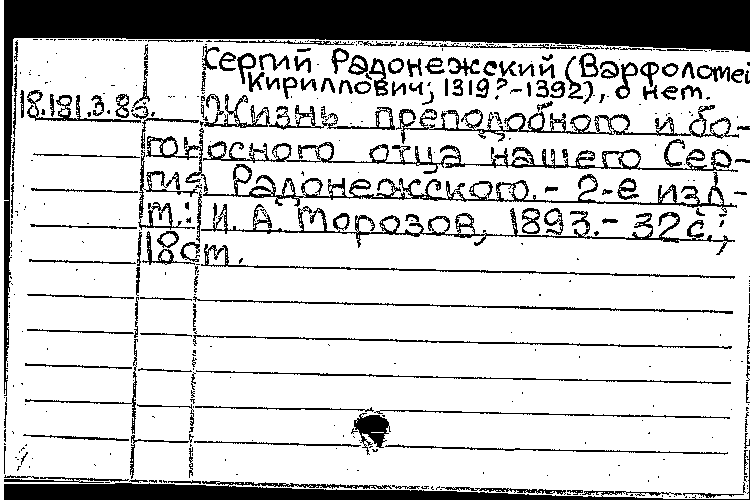 Сергий Радонежский (Варфоломей
Кириллович; 1319?-1392), о нем.
18.181.3.86. Жизнь преподобного и бо-
гоносного отца нашего Сер-
гия Радонежского. - 2-е изд. -
т.: И. А. Морозов, 1893. - 32 с.;
18 см.